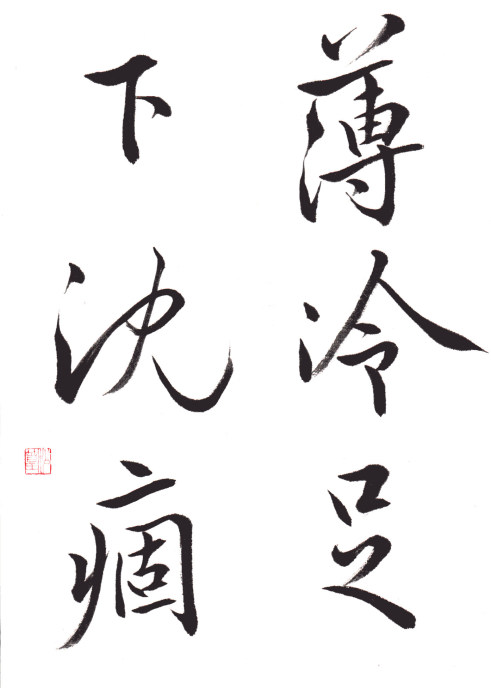 薄冷足
下沈痼